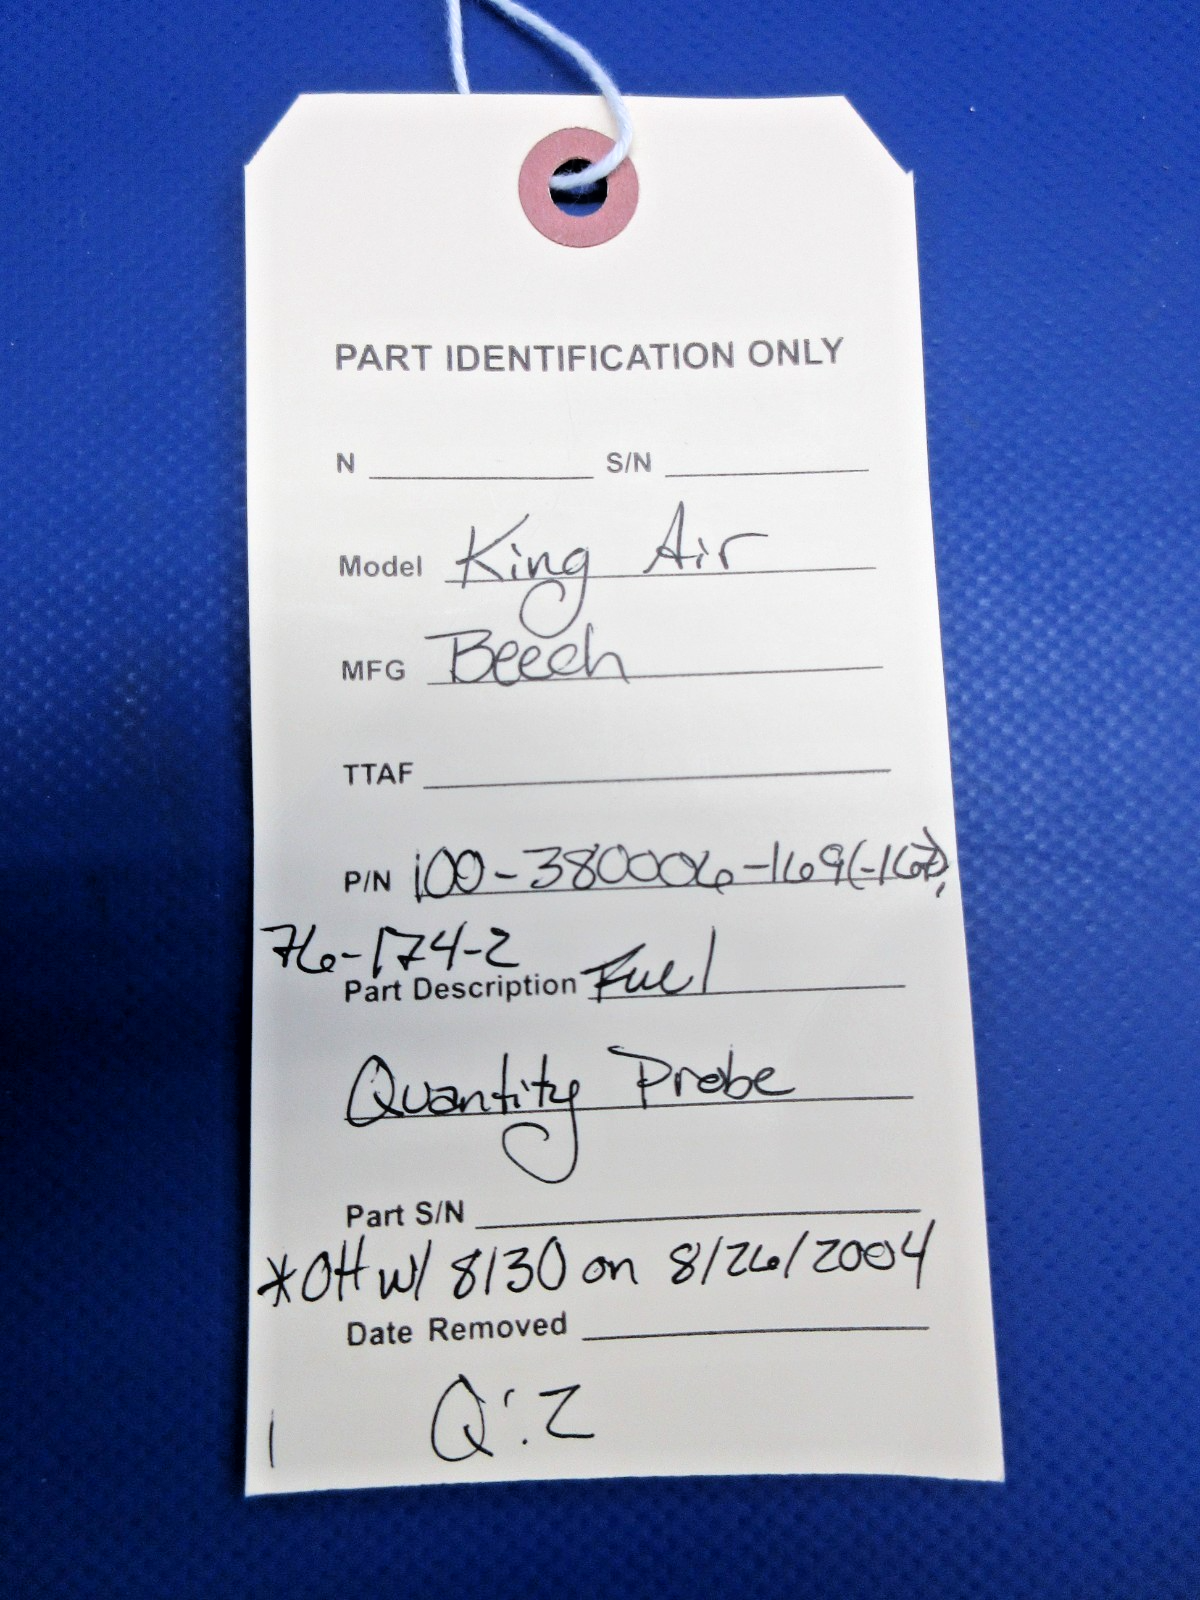 PART IDENTIFICATION ONLY
N S/N
Model King Air
MFG Beech
TTAF
P/N 100-380006-169(-167),
76-174-2
Part Description Fuel
Quantity Probe
Part S/N
*OH w/ 8130 on 8/26/2004
Date Removed
| Q: 2